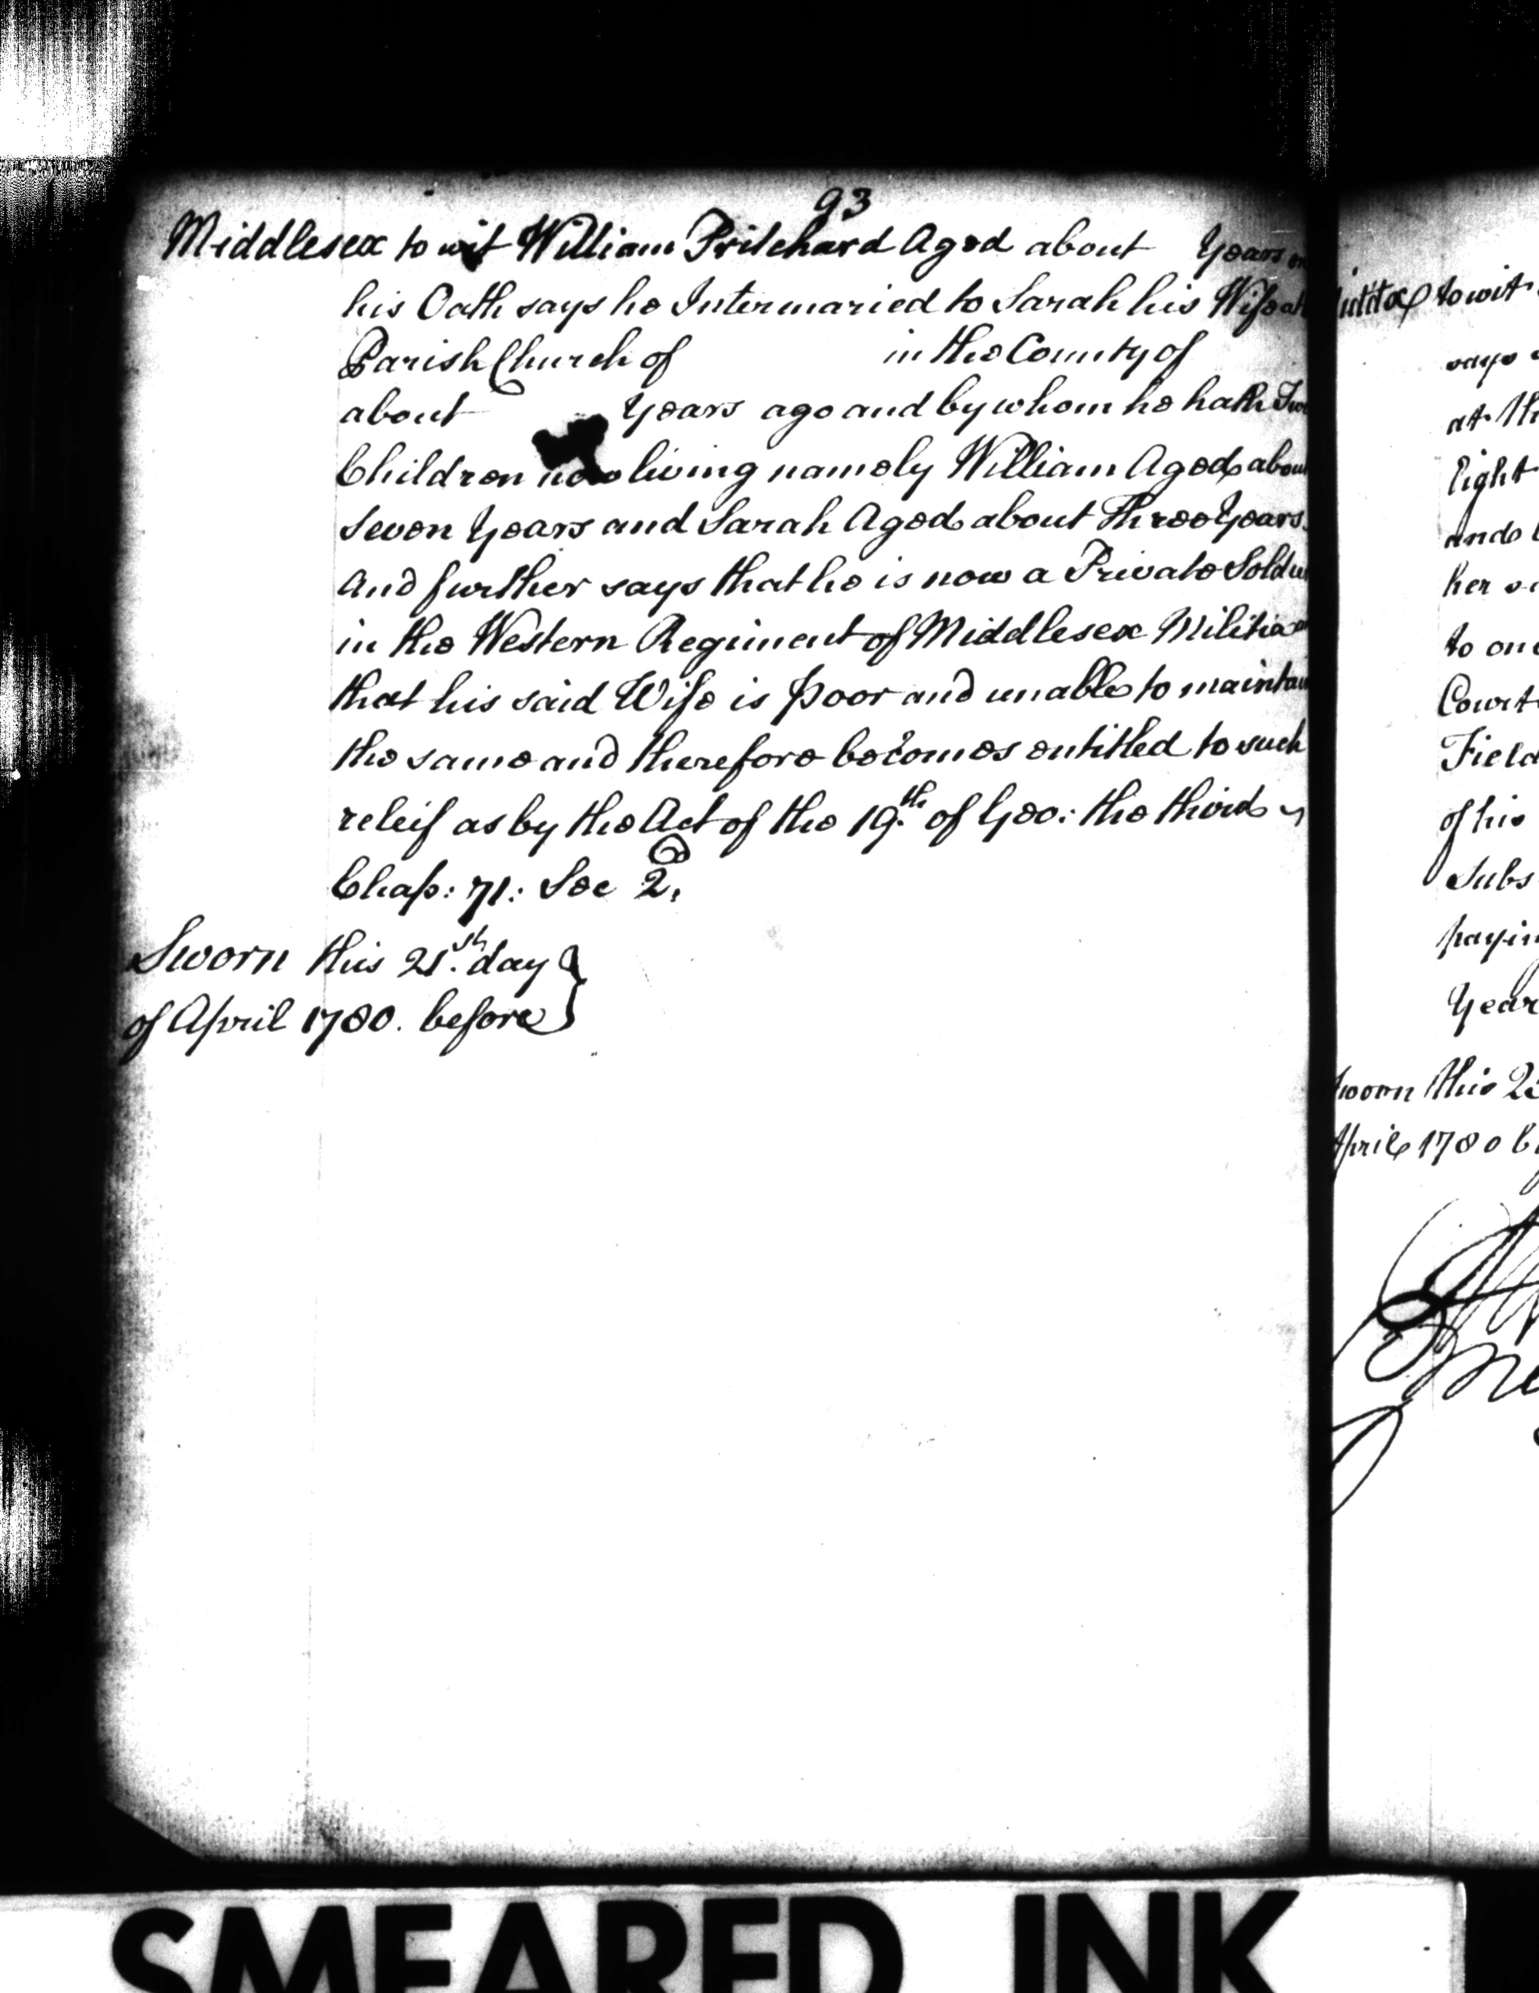 93
Middlesex to wit William Pritchard Aged about Years on
his Oath says he Intermaried to Sarah his Wife at
Parish Church of in the County of
about Years ago and by whom he hath Two
Children now living namely William Aged about
Seven Years and Sarah Aged about Three Years.
And further says that he is now a Private Soldier
in the Western Regiment of Middlesex Militia
that his said Wife is poor and unable to maintain
the same and therefore becomes entitled to such
releif as by the Act of the 19.th of Geo: the third
Chap: 71: Sec 2.
Sworn this 21.st day
of April 1780. before
to wit
says
at th
Eight
and
her
to one
Court
Field
of his
Subs
payin
Year
Sworn this 2
April 1780 b
SMEARED INK